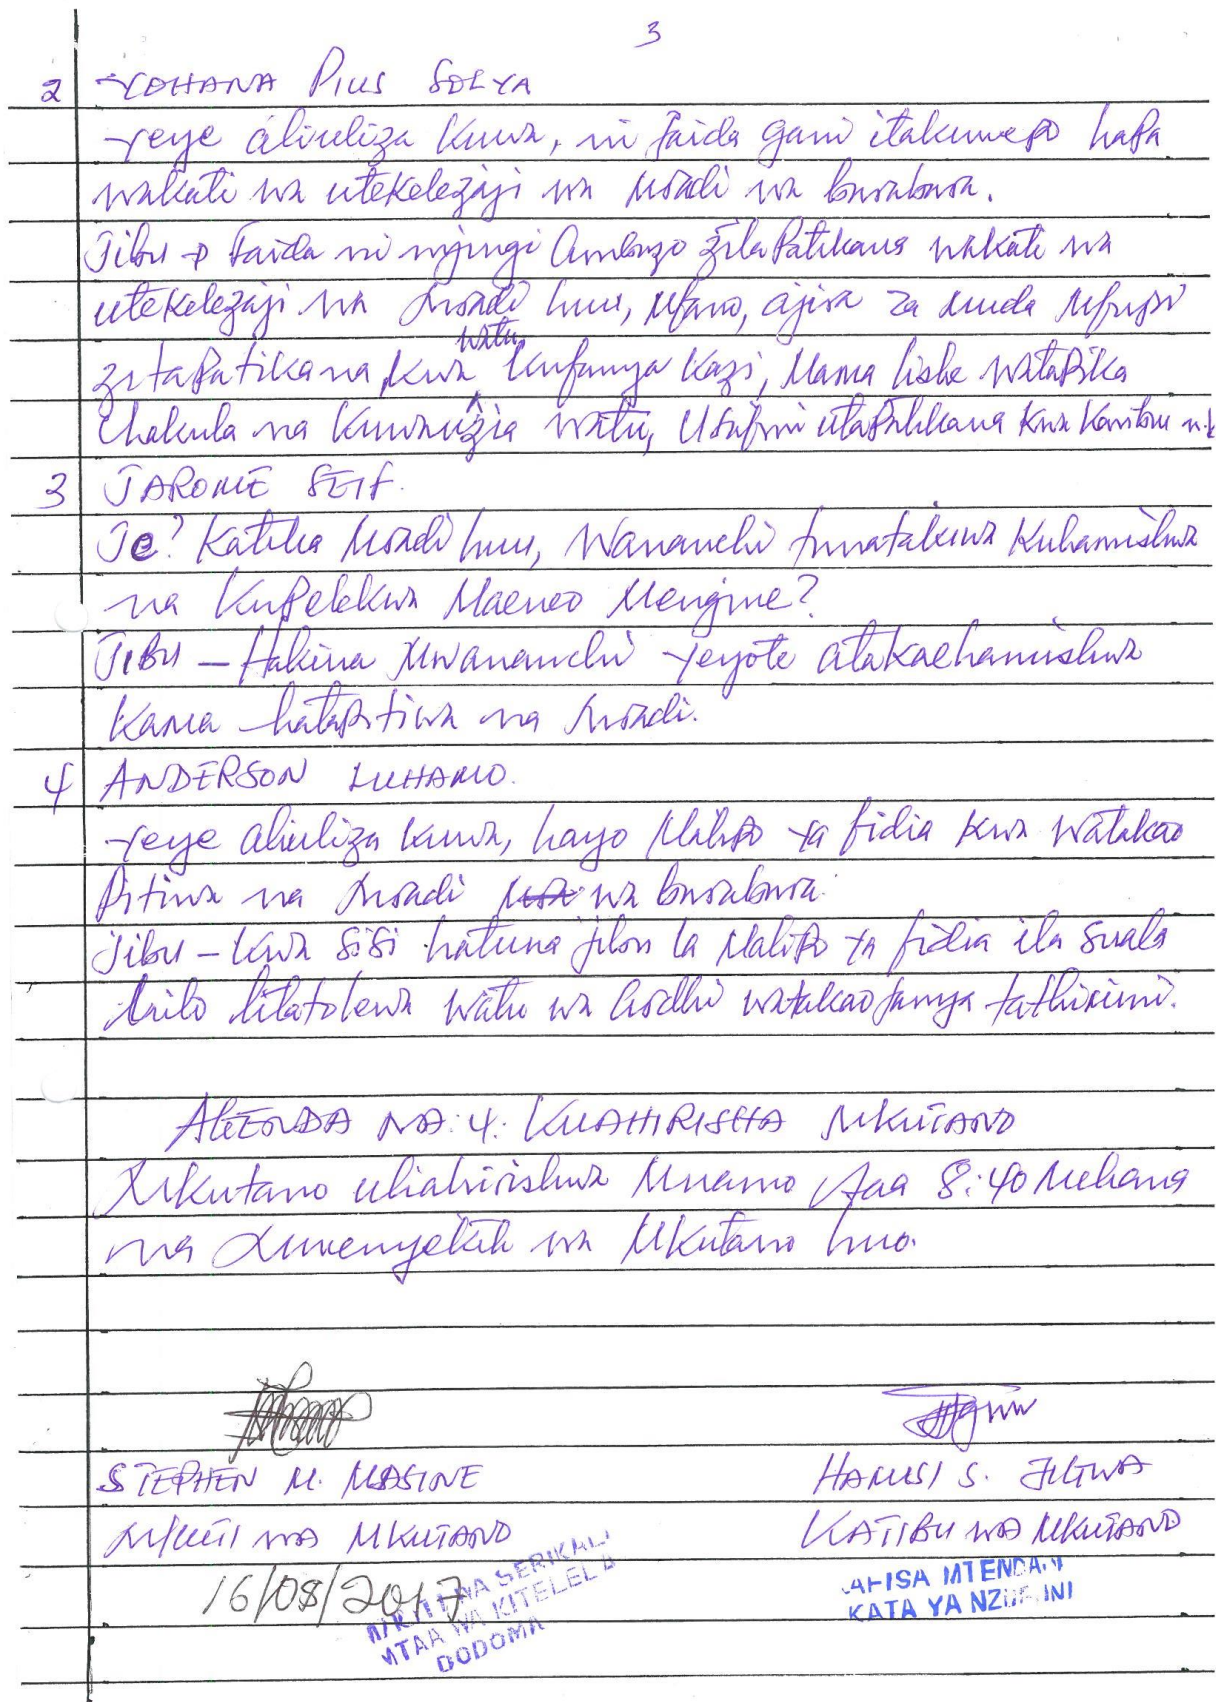 3
2 YOHANA PIUS SOLYA
Yeye aliuliza kuwa, ni faida gani itakuwepo hapa
wakati wa utekelezaji wa mradi wa bwabwa.
Jibu → Faida ni nyingi ambazo zitapatikana wakati wa
utekelezaji wa mradi huu, Mfano, ajira za muda mfupi
zitapatikana, kwa watu kufanya kazi, Mama lishe watapika
chakula na kuwauzia watu, Usafiri utapatikana kwa karibu n.k
3 JAROME SEIF.
Je? Katika mradi huu, Wananchi tunatakiwa kuhamishwa
na kupelekwa Maeneo Mengine?
JIBU – Hakuna Mwananchi yeyote atakaehamishwa
kama hatapitiwa na mradi.
4 ANDERSON LUHAMO.
Yeye aliuliza kuwa, hayo Malipo ya fidia kwa watakao
pitiwa na mradi wa bwabwa.
Jibu – Kwa sisi hatuna jibu la Malipo ya fidia ila suala
hilo litatolewa watu wa Ardhi watakaofanya tathimini.
AGENDA NA: 4: KUAHIRISHA MKUTANO
Mkutano uliahirishwa Mnamo Saa 8:40 Mchana
na Mwenyekiti wa Mkutano huo.
STEPHEN M. MASINE HAMISI S. JILIWA
M/KITI WA MKUTANO KATIBU WA MKUTANO
16/08/2017
M/KITI WA SERIKALI
MTAA WA KITELELA
DODOMA
AFISA MTENDAJI
KATA YA NZUGUNI